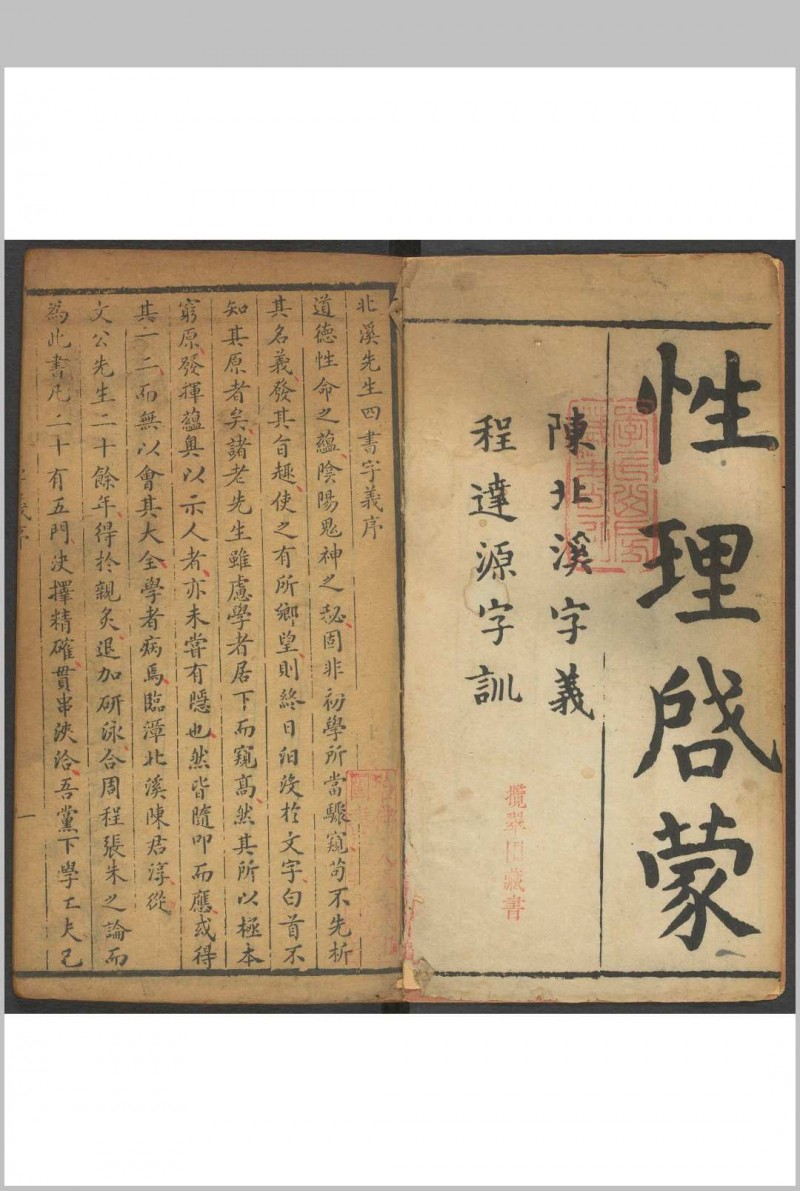 性理啓蒙
陳北溪字義
程達源字訓
攬翠田藏書
北溪先生四書字義序
道德性命之蘊陰陽鬼神之秘固非初學所當驟窺苟不先析
其名義發其旨趣使之有所鄉望則終日汨没於文字白首不
知其原者矣諸老先生雖慮學者居下而窺高然其所以極本
窮原發揮蘊奥以示人者亦未嘗有隱也然皆隨叩而應或得
其一二而無以會其大全學者病焉臨漳北溪陳君淳從
文公先生二十餘年得於親炙退加研泳合周程張朱之論而
為此書凡二十有五門決擇精確貫串浹洽吾黨下學工夫已
字義序
一